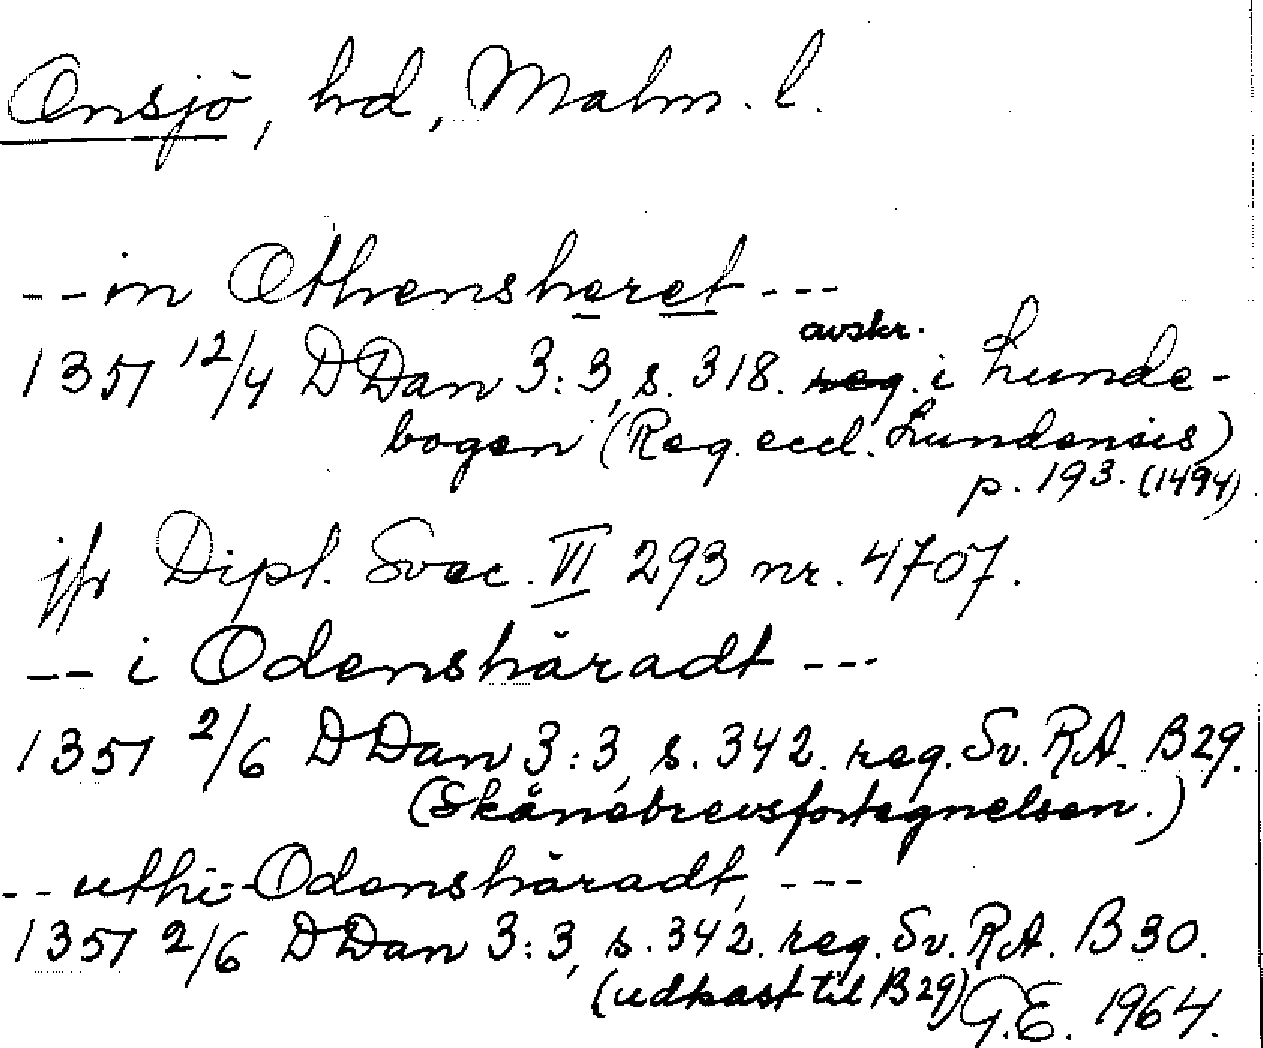 Onsjö, hd, Malm. l.
-- in Othensheret ---
1351 12/4 DDan 3:3, s. 318. avskr. i Lunde-
bogen (Reg. eccl. Lundensis)
p. 193. (1494)
jfr Dipl. Svec. VI 293 nr. 4707.
-- i Odenshäradt ---
1351 2/6 DDan 3:3, s. 342. reg. Sv. RA. B29.
(Skånebrevsfortegnelsen.)
-- uthi Odenshäradt, ---
1351 2/6 DDan 3:3, s. 342. reg. Sv. RA. B30.
(udkast til B29) G.E. 1964.